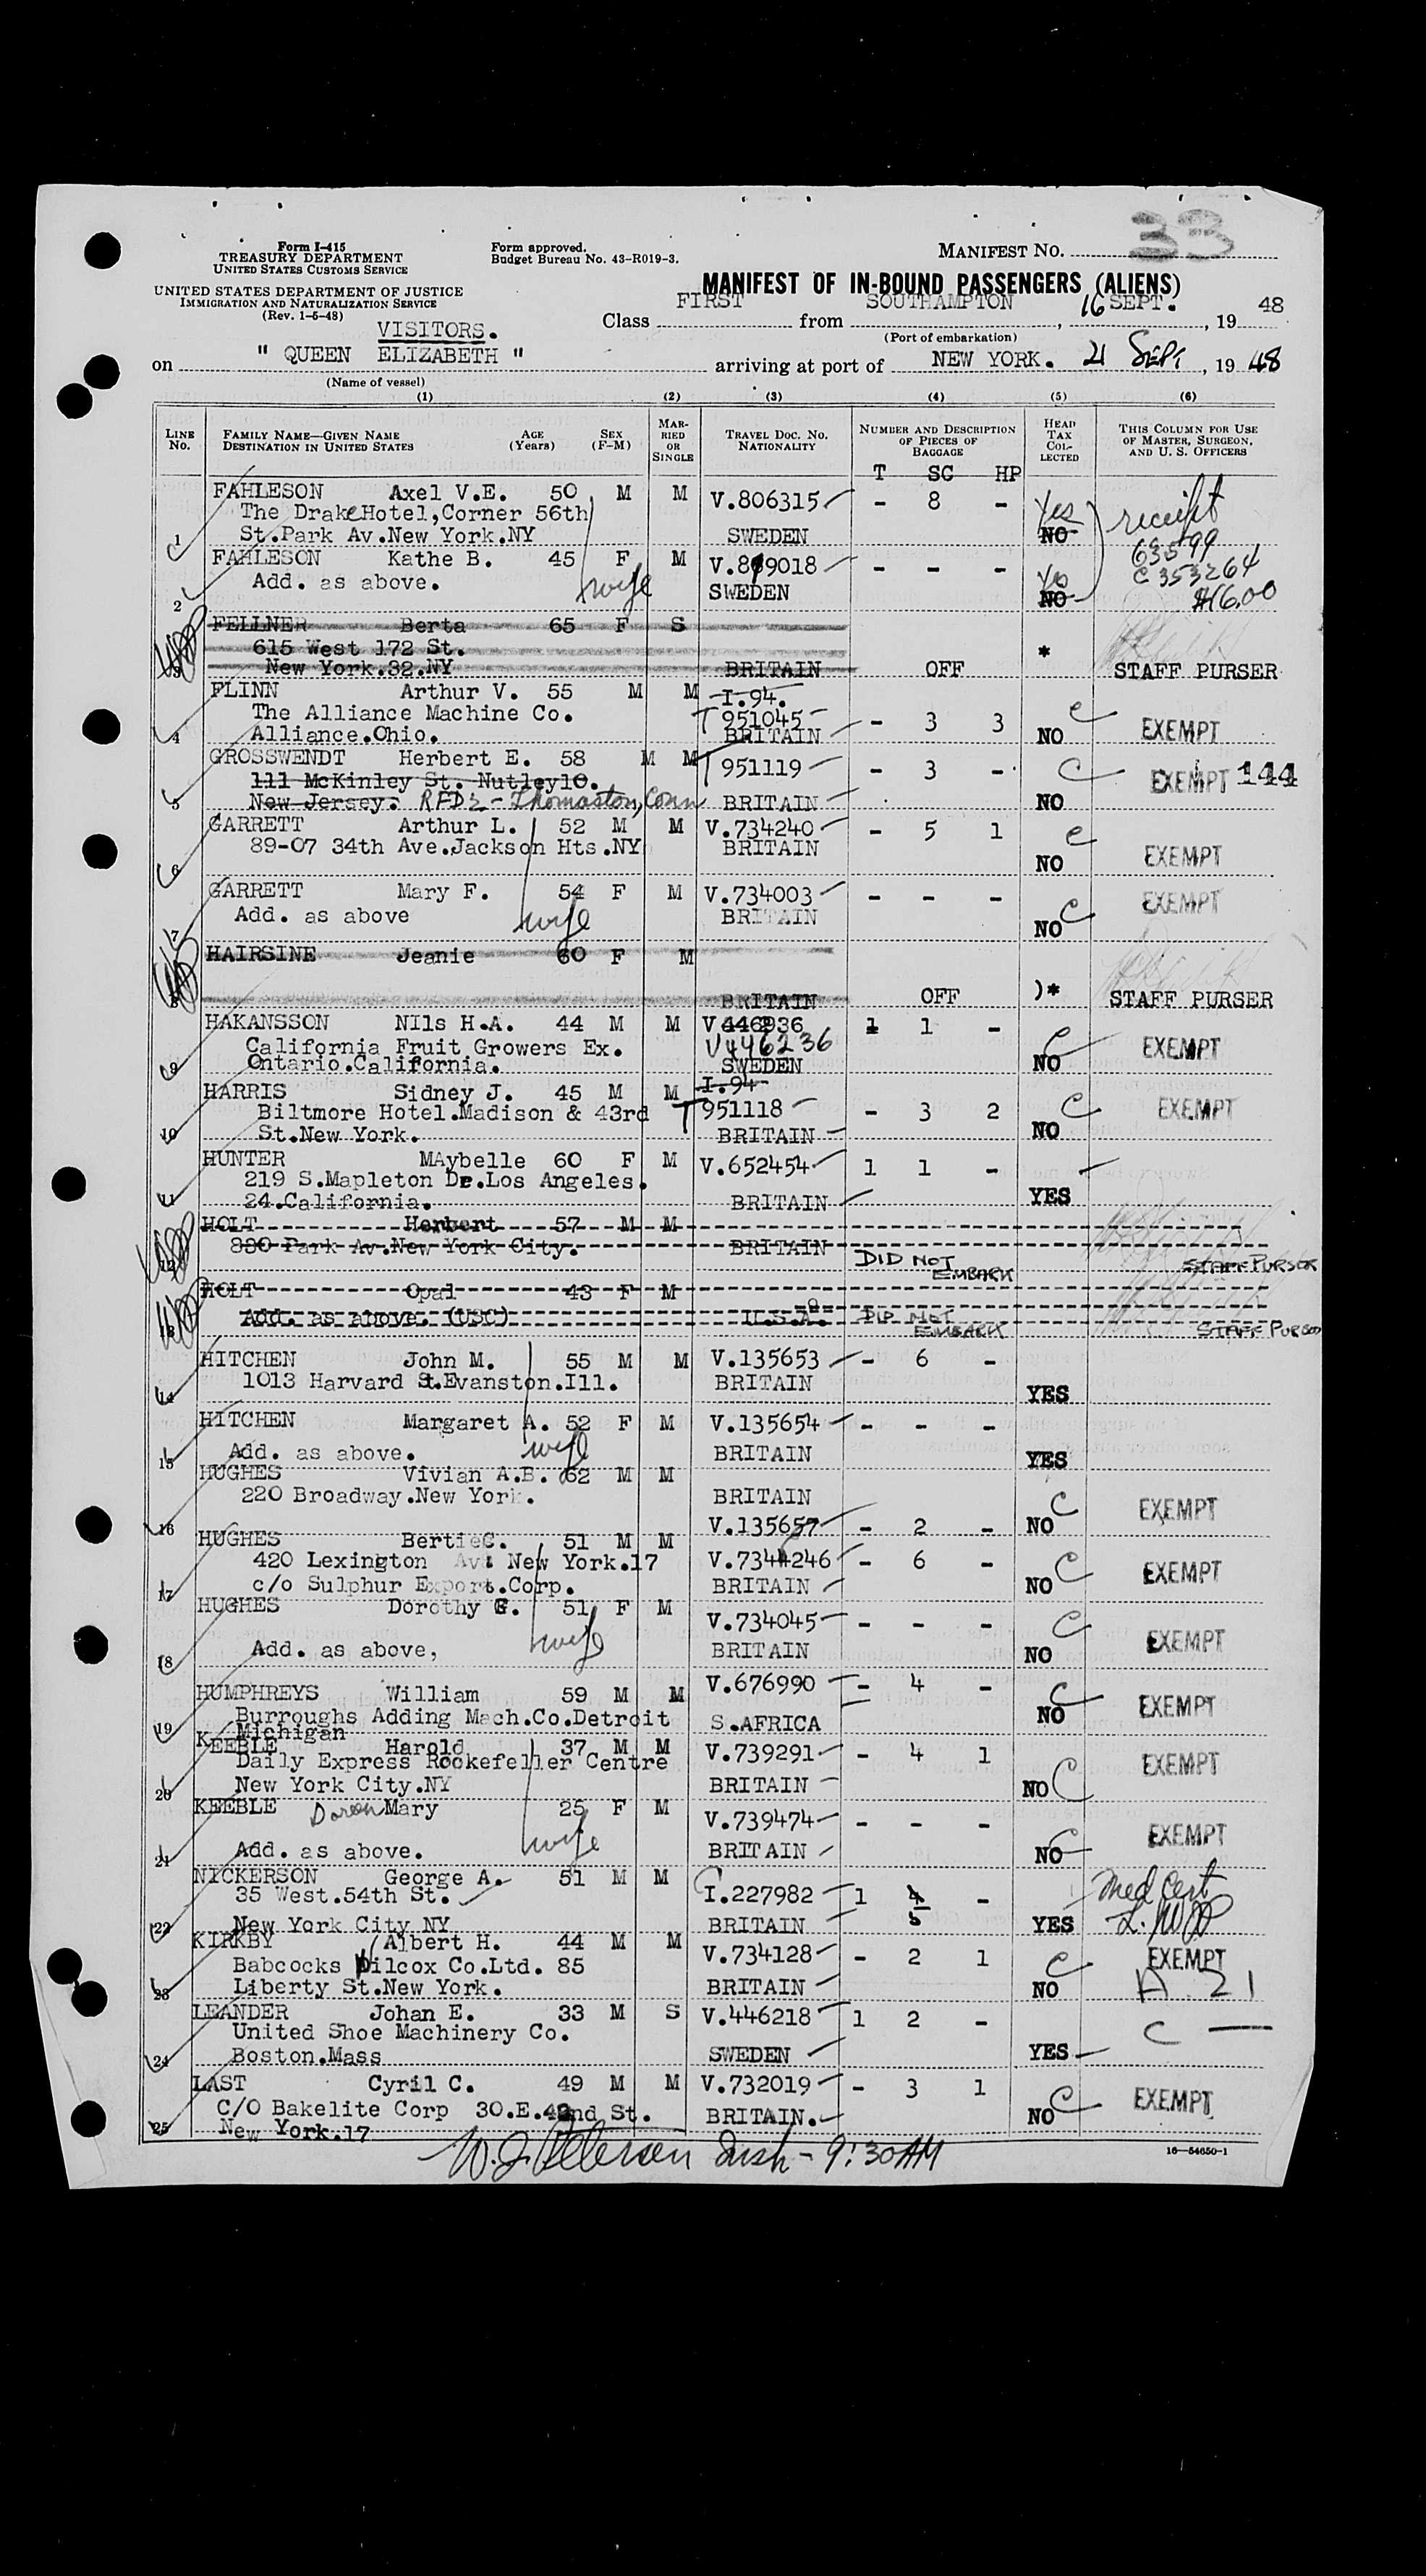 33
Form I-415
TREASURY DEPARTMENT
UNITED STATES CUSTOMS SERVICE
Form approved.
Budget Bureau No. 43-R019-3.
MANIFEST NO.
UNITED STATES DEPARTMENT OF JUSTICE
IMMIGRATION AND NATURALIZATION SERVICE
(Rev. 1-5-48)
MANIFEST OF IN-BOUND PASSENGERS (ALIENS)
VISITORS.
Class FIRST from SOUTHAMPTON, 16 SEPT., 19 48
(Port of embarkation)
on " QUEEN ELIZABETH " arriving at port of NEW YORK. 21 SEPT, 19 48
(Name of vessel)
(1) (2) (3) (4) (5) (6)
LINE No. FAMILY NAME—GIVEN NAME DESTINATION IN UNITED STATES AGE (Years) SEX (F-M) MARRIED OR SINGLE TRAVEL DOC. NO. NATIONALITY NUMBER AND DESCRIPTION OF PIECES OF BAGGAGE HEAD TAX COLLECTED THIS COLUMN FOR USE OF MASTER, SURGEON, AND U. S. OFFICERS
T SC HP
FAHLESON Axel V.E. 50 M M V.806315 - 8 - Yes receipt
The Drake Hotel,Corner 56th
1 St.Park Av.New York.NY SWEDEN NO 63599
FAHLESON Kathe B. 45 F M V.819018 - - - Yes C 353264
Add. as above. wife SWEDEN
2 NO $16.00
FELLNER Berta 65 F S
615 West 172 St. *
3 New York.32.NY BRITAIN OFF STAFF PURSER
FLINN Arthur V. 55 M M I.94.
The Alliance Machine Co. T 951045 - 3 3 C
4 Alliance.Ohio. BRITAIN NO EXEMPT
GROSSWENDT Herbert E. 58 M M T 951119 - 3 - C EXEMPT 144
111 McKinley St. Nutley10.
5 New Jersey. RFD2 - Thomaston, Conn BRITAIN NO
GARRETT Arthur L. 52 M M V.734240 - 5 1 C
89-07 34th Ave.Jackson Hts.NY BRITAIN
6 NO EXEMPT
GARRETT Mary F. 54 F M V.734003 - - - EXEMPT
Add. as above wife BRITAIN
7 NO C
HAIRSINE Jeanie 60 F M
8 BRITAIN OFF )* STAFF PURSER
HAKANSSON NIls H.A. 44 M M V446936 1 1 -
California Fruit Growers Ex. V446236 C EXEMPT
9 Ontario.California. SWEDEN NO
HARRIS Sidney J. 45 M M I.94
Biltmore Hotel.Madison & 43rd T 951118 - 3 2 C EXEMPT
10 St.New York. BRITAIN NO
HUNTER MAybelle 60 F M V.652454 1 1 -
219 S.Mapleton Dr.Los Angeles.
11 24.California. BRITAIN YES
HOLT Herbert 57 M M
830 Park Av.New York City. BRITAIN
12 DID NOT EMBARK STAFF PURSER
HOLT Opal 43 F M
13 Add. as above. (USC) U.S.A. DID NOT EMBARK STAFF PURSER
HITCHEN John M. 55 M M V.135653 - 6 -
1013 Harvard St.Evanston.Ill. BRITAIN
14 YES
HITCHEN Margaret A. 52 F M V.135654 - - -
15 Add. as above. wife BRITAIN YES
HUGHES Vivian A.B. 62 M M
220 Broadway.New York. BRITAIN C EXEMPT
16 V.135657 - 2 - NO
HUGHES Bertie C. 51 M M
420 Lexington Av. New York.17 V.734246 - 6 - C EXEMPT
17 c/o Sulphur Export.Corp. BRITAIN NO
HUGHES Dorothy G. 51 F M V.734045 - - - C
18 Add. as above, wife BRITAIN NO EXEMPT
HUMPHREYS William 59 M M V.676990 - 4 - C
19 Burroughs Adding Mach.Co.Detroit S.AFRICA NO EXEMPT
Michigan
KEEBLE Harold 37 M M V.739291 - 4 1 EXEMPT
Daily Express Rockefeller Centre
20 New York City.NY BRITAIN NO C
KEEBLE Doreen Mary 25 F M V.739474 - - -
21 Add. as above. wife BRITAIN NO C EXEMPT
NICKERSON George A. 51 M M
35 West.54th St. I.227982 1 4 - Med Cert
22 New York City NY BRITAIN 5 YES
KIRKBY Albert H. 44 M M V.734128 - 2 1 C EXEMPT
Babcocks Wilcox Co.Ltd. 85
23 Liberty St.New York. BRITAIN NO A 21
LEANDER Johan E. 33 M S V.446218 1 2 - C
United Shoe Machinery Co.
24 Boston.Mass SWEDEN YES
LAST Cyril C. 49 M M V.732019 - 3 1
C/O Bakelite Corp 30.E.42nd St. BRITAIN. NO C EXEMPT
25 New York.17
W.J. Petersen Insp - 9:30AM
16—54650-1